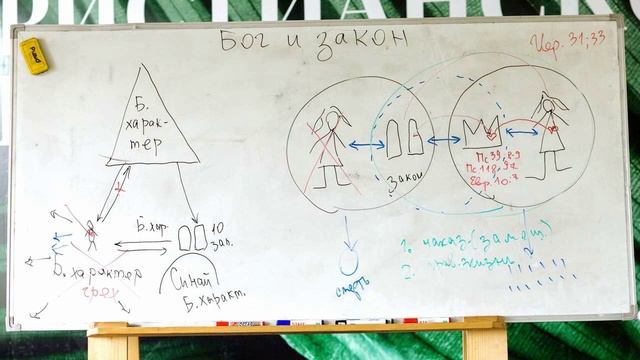 РИСТИАНСК
Бог и закон
Иер. 31:33
Б.
харак-
тер
закон
Пс 39, 8-9
Пс 118, 97
Евр. 10:7
Б. хар.
10
зап.
Б. характер
Синай
Б. характ.
смерть
1. наказ.
2. жизни